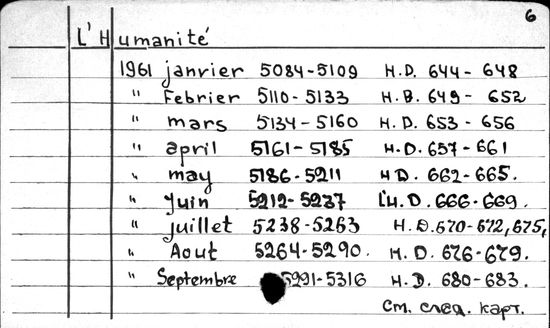 6
L'Humanité
1961 janvier 5084-5109 H.D. 644-648
" Febrier 5110-5133 H.B. 649-652
" mars 5134-5160 H.D. 653-656
" april 5161-5185 H.D. 657-661
" may 5186-5211 HD. 662-665.
" Juin 5212-5237 L'H.D. 666-669.
" juillet 5238-5263 H.D.670-672,675,
" Aout 5264-5290. H.D. 676-679.
" Septembre 5291-5316 H.D. 680-683.
См. след. карт.